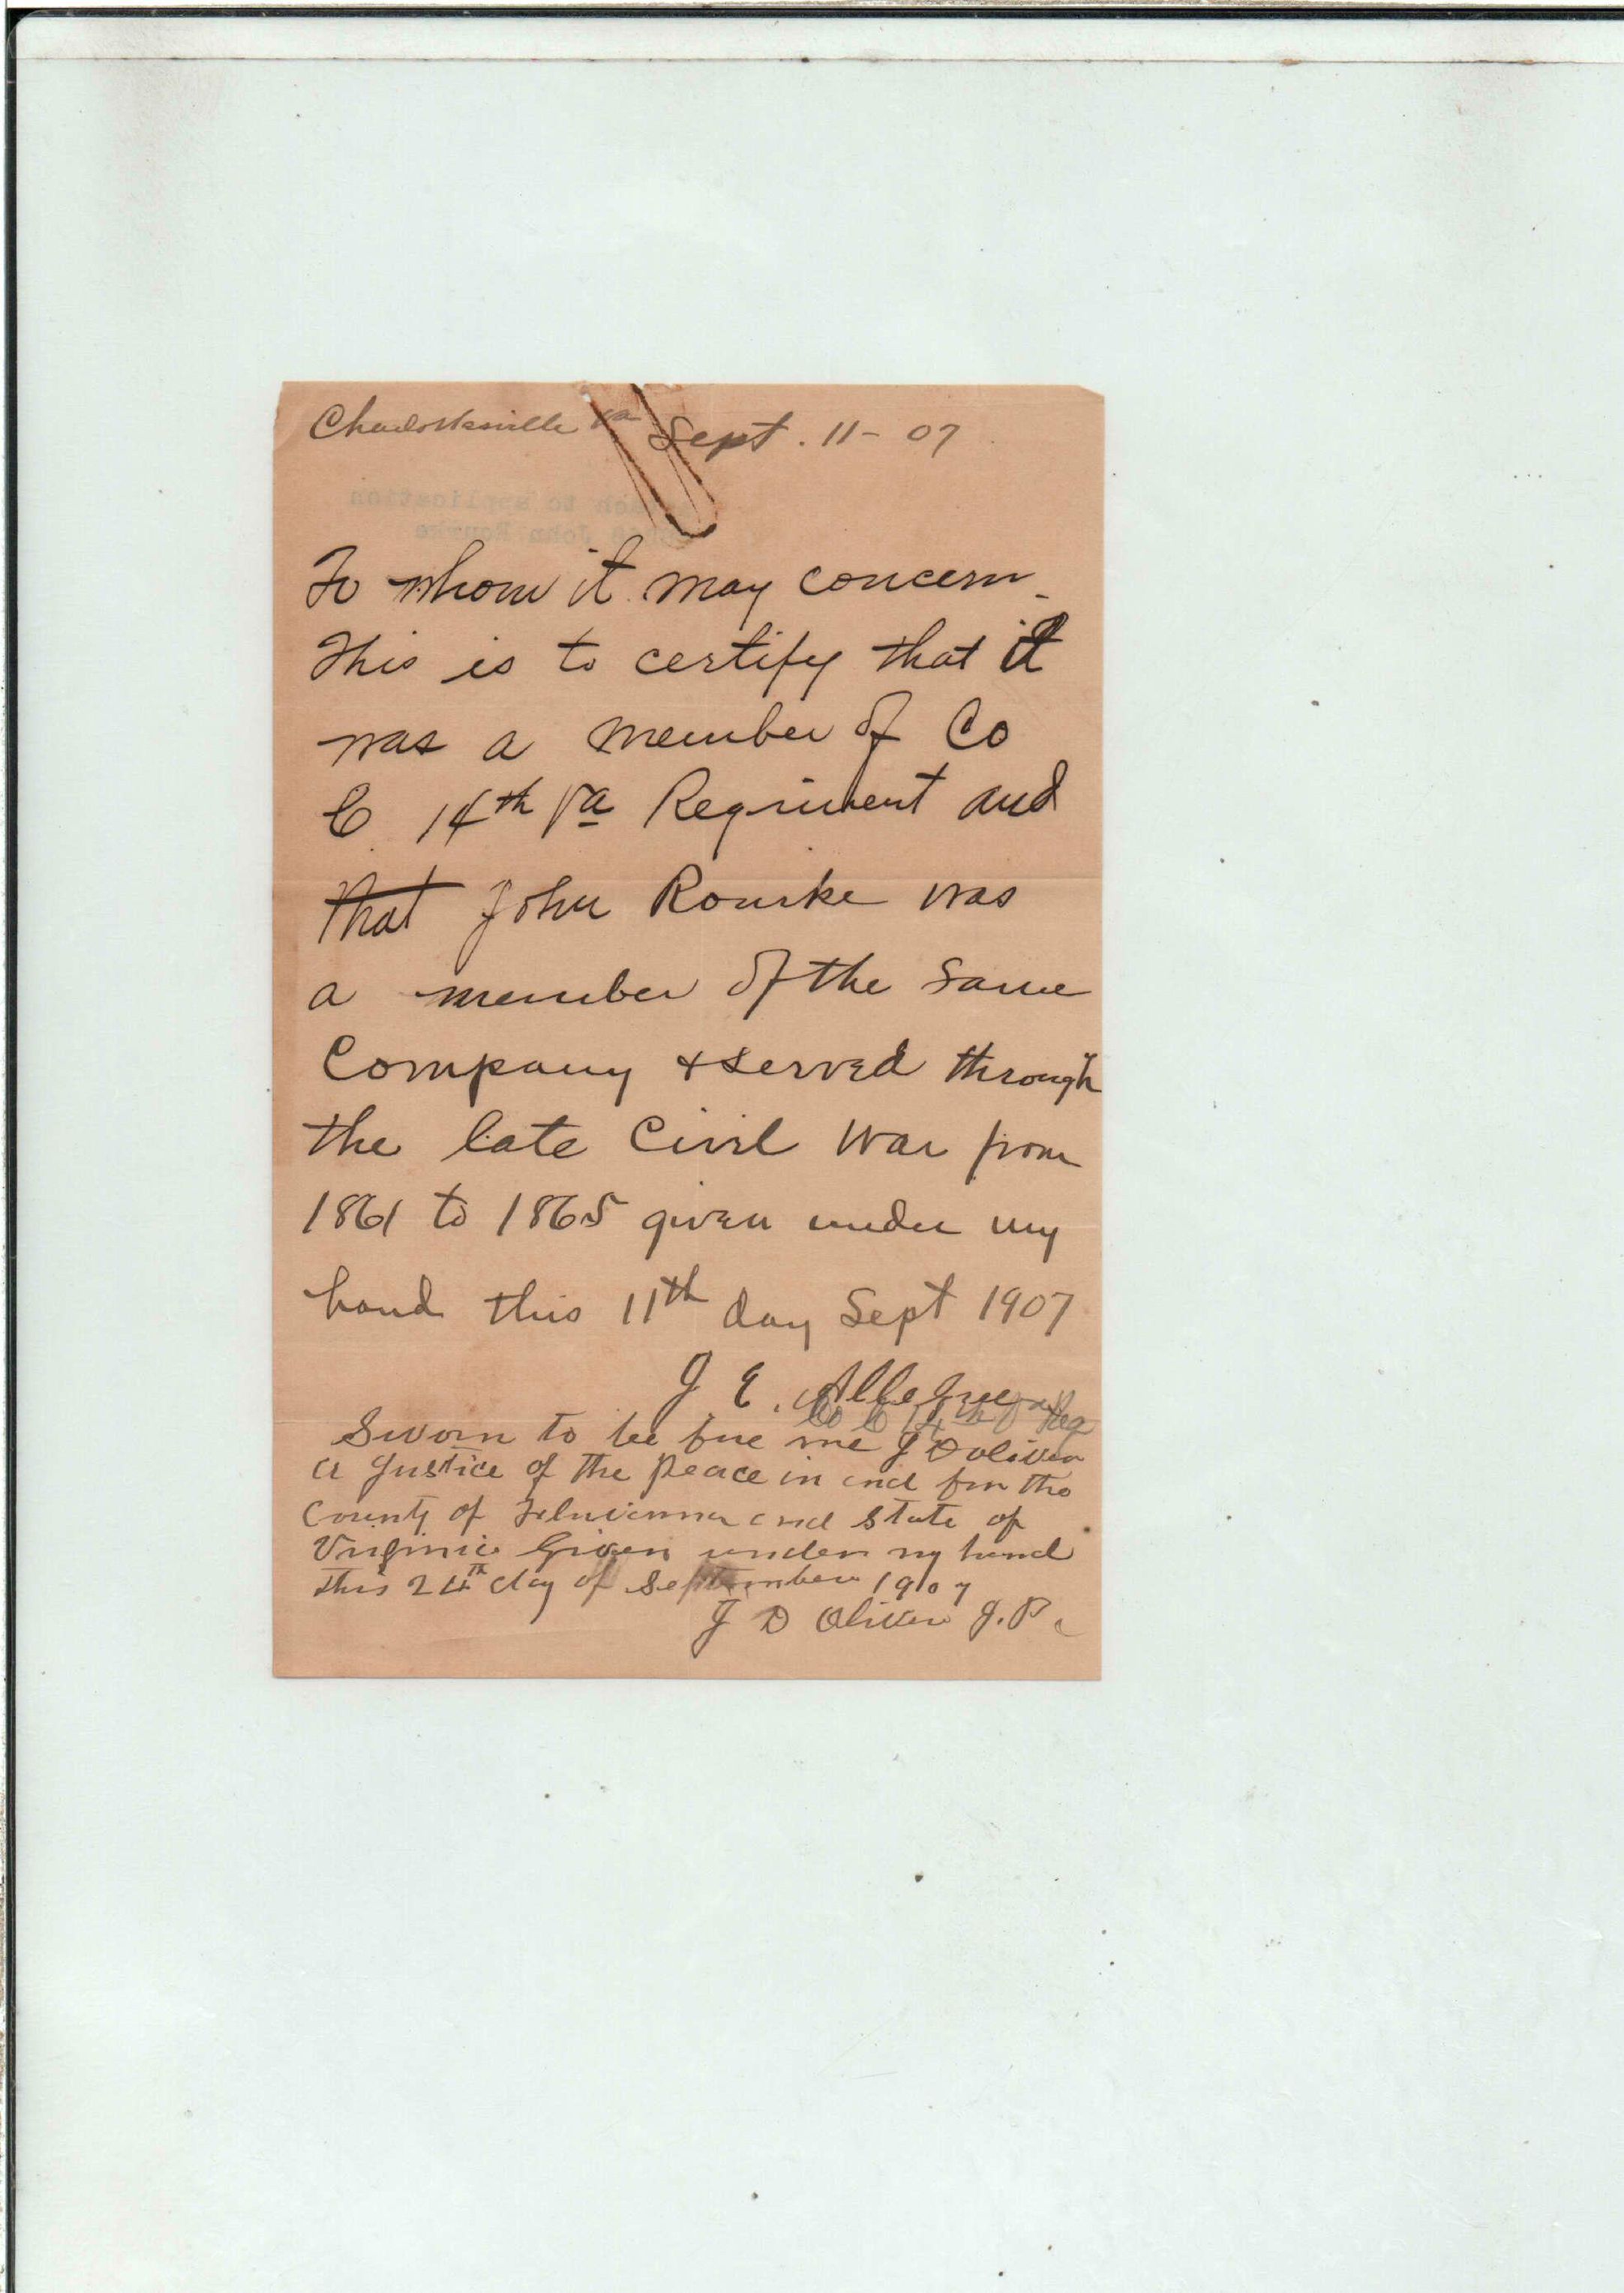 Charlottesville Va Sept. 11 - 07
To whom it may concern -
This is to certify that it
was a member of Co
C 14th Va Regriment and
that John Rourke was
a member of the same
Company + served through
the late Civil War from
1861 to 1865 given under my
hand this 11th day Sept 1907
J E. Allegree
Co C 14th Va Reg
Sworn to be fore me J D Oliver
a Justice of the Peace in and for the
County of Fluvanna and State of
Virginia Given under my hand
this 24th day of September 1907
J D Oliver J.P.